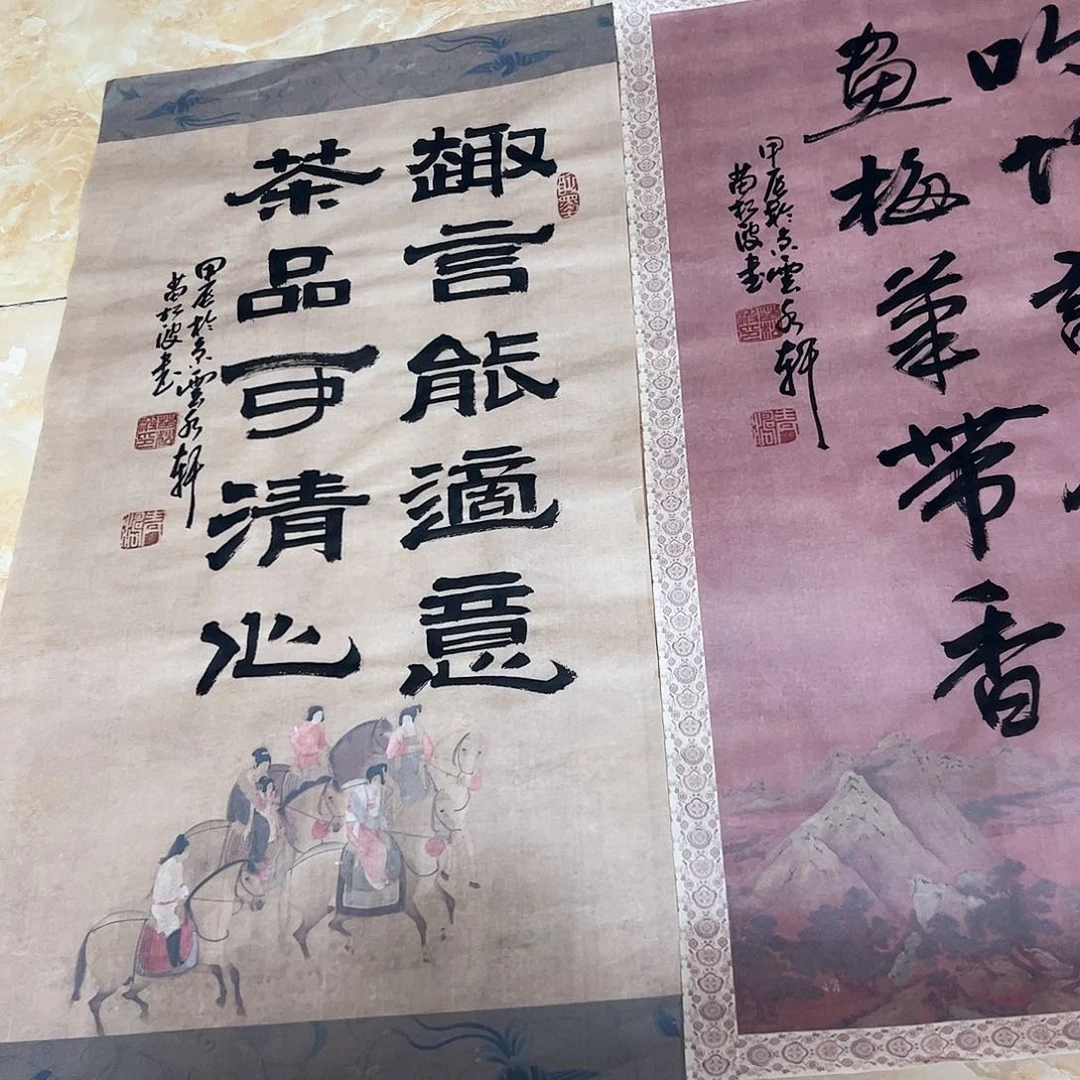 趣言能適意
茶品可清心
甲辰於京雲水軒
苗松波書
吟竹
畫梅筆帶香
甲辰於京雲水軒
苗松波書